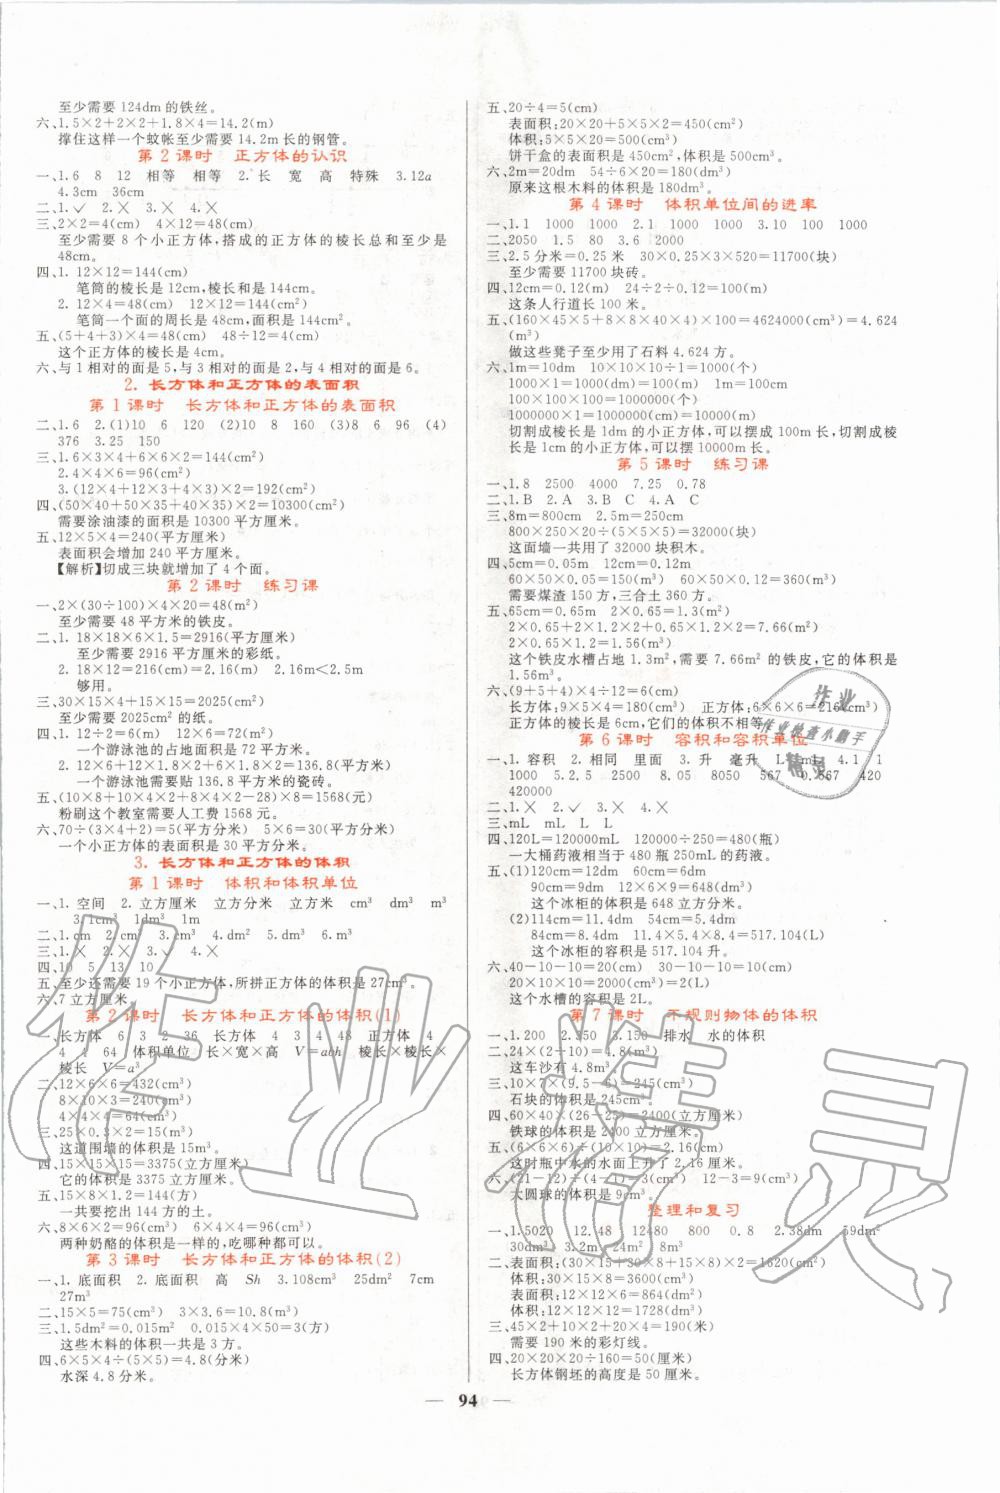 至少需要 124dm 的铁丝。
六、1.5×2+2×2+1.8×4=14.2(m)
撑住这样一个蚊帐至少需要 14.2m 长的钢管。
第 2 课时 正方体的认识
一、1.6 8 12 相等 相等 2.长 宽 高 特殊 3.12a
4.3cm 36cm
二、1.✓ 2.× 3.× 4.×
三、2×2=4(cm) 4×12=48(cm)
至少需要 8 个小正方体,搭成的正方体的棱长总和至少是
48cm。
四、1. 12×12=144(cm)
笔筒的棱长是 12cm,棱长和是 144cm。
2. 12×4=48(cm) 12×12=144(cm²)
笔筒一个面的周长是 48cm,面积是 144cm²。
五、(5+4+3)×4=48(cm) 48÷12=4(cm)
这个正方体的棱长是 4cm。
六、与 1 相对的面是 5,与 3 相对的面是 2,与 4 相对的面是 6。
2. 长方体和正方体的表面积
第 1 课时 长方体和正方体的表面积
二、1.6 2.(1)10 6 120 (2)10 8 160 (3)8 6 96 (4)
376 3.25 150
三、1.6×3×4+6×6×2=144(cm²)
2.4×4×6=96(cm²)
3.(12×4+12×3+4×3)×2=192(cm²)
四、(50×40+50×35+40×35)×2=10300(cm²)
需要涂油漆的面积是 10300 平方厘米。
五、12×5×4=240(平方厘米)
表面积会增加 240 平方厘米。
【解析】切成三块就增加了 4 个面。
第 2 课时 练习课
一、2×(30÷100)×4×20=48(m²)
至少需要 48 平方米的铁皮。
二、1. 18×18×6×1.5=2916(平方厘米)
至少需要 2916 平方厘米的彩纸。
2. 18×12=216(cm)=2.16(m) 2.16m<2.5m
够用。
三、30×15×4+15×15=2025(cm²)
至少需要 2025cm² 的纸。
四、1. 12÷2=6(m) 12×6=72(m²)
一个游泳池的占地面积是 72 平方米。
2. 12×6+12×1.2×2+6×1.2×2=136.8(m²)
一个游泳池需要贴 136.8 平方米的瓷砖。
五、(10×8+10×4×2+8×4×2-28)×8=1568(元)
粉刷这个教室需要人工费 1568 元。
六、70÷(3×4+2)=5(平方分米) 5×6=30(平方分米)
一个小正方体的表面积是 30 平方分米。
3. 长方体和正方体的体积
第 1 课时 体积和体积单位
一、1. 空间 2. 立方厘米 立方分米 立方米 cm³ dm³ m³
3. 1cm³ 1dm³ 1m
二、1.cm 2.cm³ 3.cm³ 4.dm² 5.dm³ 6.m³
三、1.× 2.× 3.✓ 4.×
四、10 5 13 10
五、至少还需要 19 个小正方体,所拼正方体的体积是 27cm³。
六、7 立方厘米。
第 2 课时 长方体和正方体的体积(1)
一、长方体 6 3 2 36 长方体 4 3 4 48 正方体 4
4 4 64 体积单位 长×宽×高 V=abh 棱长×棱长×
棱长 V=a³
二、12×6×6=432(cm³)
8×10×3=240(cm³)
4×4×4=64(cm³)
三、25×0.3×2=15(m³)
这道围墙的体积是 15m³。
四、15×15×15=3375(立方厘米)
它的体积是 3375 立方厘米。
五、15×8×1.2=144(方)
一共要挖出 144 方的土。
六、8×6×2=96(cm³) 6×4×4=96(cm³)
两种奶酪的体积是一样的,吃哪种都可以。
第 3 课时 长方体和正方体的体积(2)
一、1. 底面积 2. 底面积 高 Sh 3.108cm³ 25dm² 7cm
27m³
二、15×5=75(cm³) 3×3.6=10.8(m³)
三、1.5dm²=0.015m² 0.015×4×50=3(方)
这些木料的体积一共是 3 方。
四、6×5×4÷(5×5)=4.8(分米)
水深 4.8 分米。
五、20÷4=5(cm)
表面积:20×20+5×5×2=450(cm²)
体积:5×5×20=500(cm³)
饼干盒的表面积是 450cm²,体积是 500cm³。
六、2m=20dm 54÷6×20=180(dm³)
原来这根木料的体积是 180dm³。
第 4 课时 体积单位间的进率
一、1.1 1000 1000 2.1 1000 1000 3.10 100 1000
二、2050 1.5 80 3.6 2000
三、2.5 分米=0.25 米 30×0.25×3×520=11700(块)
至少需要 11700 块砖。
四、12cm=0.12(m) 24÷2÷0.12=100(m)
这条人行道长 100 米。
五、(160×45×5+8×8×40×4)×100=4624000(cm³)=4.624
(m³)
做这些凳子至少用了石料 4.624m³。
六、1m=10dm 10×10×10÷1=1000(个)
1000×1=1000(dm)=100(m) 1m=100cm
100×100×100=1000000(个)
1000000×1=1000000(cm)=10000(m)
切割成棱长是 1dm 的小正方体,可以摆成 100m 长,切割成棱
长是 1cm 的小正方体,可以摆 10000m 长。
第 5 课时 练习课
一、1.8 2500 4000 7.25 0.78
二、1.B 2.A 3.B C 4.A 5.C
三、8m=800cm 2.5m=250cm
800×250×20÷(5×5×5)=32000(块)
这面墙一共用了 32000 块积木。
四、5cm=0.05m 12cm=0.12m
60×50×0.05=150(m³) 60×50×0.12=360(m³)
需要煤渣 150 方,三合土 360 方。
五、65cm=0.65m 2×0.65=1.3(m²)
2×0.65+2×1.2×2+0.65×1.2×2=7.66(m²)
2×0.65×1.2=1.56(m³)
这个铁皮水槽占地 1.3m²,需要 7.66m² 的铁皮,它的体积是
1.56m³。
六、(9+5+4)×4÷12=6(cm)
长方体:9×5×4=180(cm³) 正方体:6×6×6=216(cm³)
正方体的棱长是 6cm,它们的体积不相等。
第 6 课时 容积和容积单位
一、1. 容积 2. 相同 里面 3. 升 毫升 L mL 4.1 1
1000 5.2.5 2500 8.05 8050 567 0.567 420
420000
二、1.× 2.✓ 3.× 4.×
三、mL mL L L
四、120L=120000mL 120000÷250=480(瓶)
一大桶药液相当于 480 瓶 250mL 的药液。
五、(1)120cm=12dm 60cm=6dm
90cm=9dm 12×6×9=648(dm³)
这个冰柜的体积是 648 立方分米。
(2)114cm=11.4dm 54cm=5.4dm
84cm=8.4dm 11.4×5.4×8.4=517.104(L)
这个冰柜的容积是 517.104 升。
六、40-10-10=20(cm) 30-10-10=10(cm)
20×10×10=2000(cm³)=2(L)
这个水槽的容积是 2L。
第 7 课时 不规则物体的体积
一、1.200 2.350 3.150 排水 水的体积
二、24×(2÷10)=4.8(m³)
这车沙有 4.8m³。
三、10×7×(9.5-6)=245(cm³)
石块的体积是 245cm³。
四、60×40×(26-25)=2400(立方厘米)
铁球的体积是 2400 立方厘米。
五、(6×6×6)÷(10×10)=2.16(厘米)
这时瓶中水的水面上升了 2.16 厘米。
六、(21-12)÷(4-1)=3(cm³) 12-3=9(cm³)
大圆球的体积是 9cm³。
整理和复习
一、1.5020 12.48 12480 800 0.8 2.38dm 59dm²
30dm³ 3.62cm² 24cm² 8m³
二、表面积:(30×15+30×8+15×8)×2=1620(cm²)
体积:30×15×8=3600(cm³)
表面积:12×12×6=864(dm²)
体积:12×12×12=1728(dm³)
三、45×2+10×2+20×4=190(米)
需要 190 米的彩灯线。
四、20×20×20÷160=50(厘米)
长方体钢坯的高度是 50 厘米。
— 94 —
作业
作业检查小助手
精灵
作业精灵